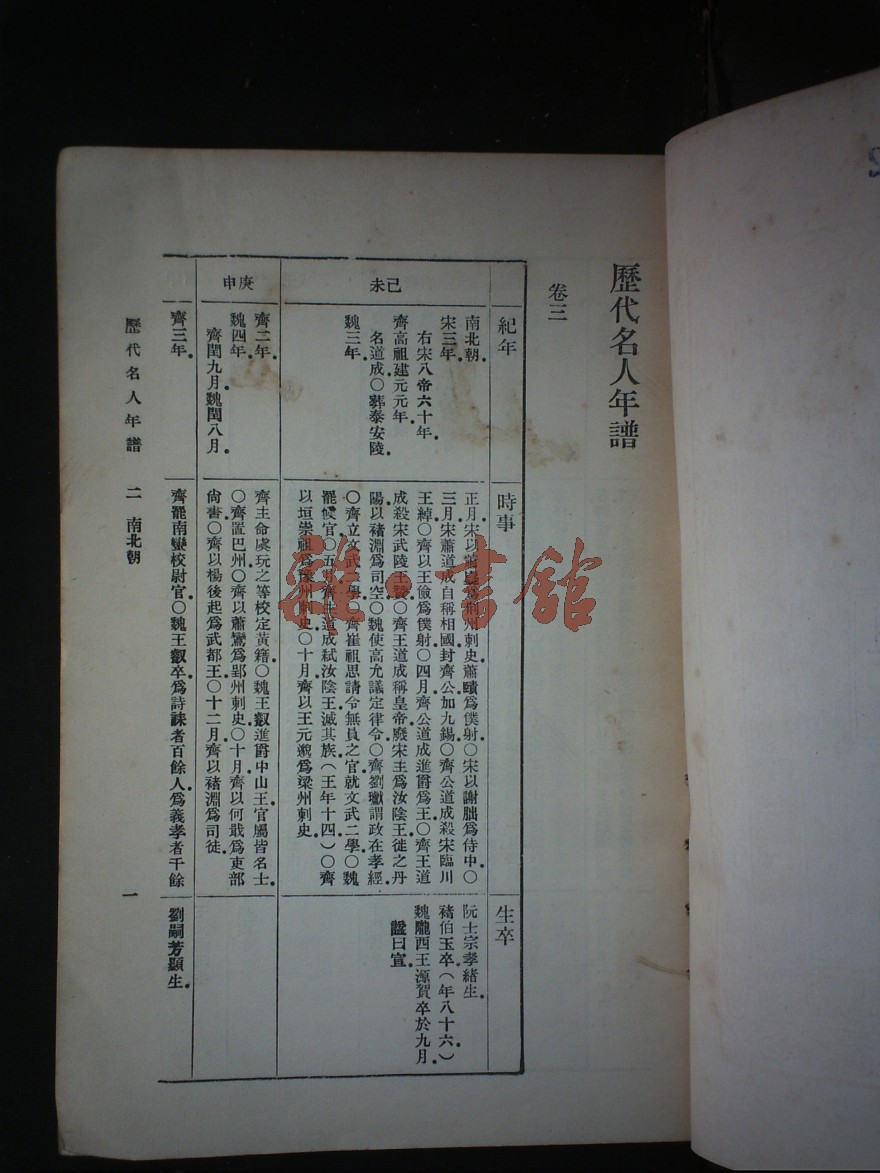 歷代名人年譜
卷三
紀年
時事
生卒
己未
南北朝
宋三年
右宋八帝六十年
齊高祖建元元年
名道成○葬泰安陵
魏三年
正月宋以蕭嶷爲荊州刺史蕭賾爲僕射○宋以謝朏爲侍中○
三月宋蕭道成自稱相國封齊公加九錫○齊公道成殺宋臨川
王綽○齊以王儉爲僕射○四月齊公道成進爵爲王○齊王道
成殺宋武陵王贊○齊王道成稱皇帝廢宋主爲汝陰王徙之丹
陽以褚淵爲司空○魏使高允議定律令○齊劉瓛謂政在孝經
○齊立文武二學○齊崔祖思請令無員之官就文武二學○魏
罷候官○五月齊主道成弒汝陰王滅其族(王年十四)○齊
以垣崇祖爲豫州刺史○十月齊以王元邈爲梁州刺史
阮士宗孝緒生
褚伯玉卒(年八十六)
魏隴西王源賀卒於九月
諡曰宣
庚申
齊二年
魏四年
齊閏九月魏閏八月
齊主命虞玩之等校定黃籍○魏王叡進爵中山王官屬皆名士
○齊置巴州○齊以蕭鸞爲郢州刺史○十月齊以何戢爲吏部
尙書○齊以楊後起爲武都王○十二月齊以褚淵爲司徒
齊三年
齊罷南蠻校尉官○魏王叡卒爲詩誄者百餘人爲義孝者千餘
劉嗣芳顯生
歷代名人年譜 二 南北朝 一
雜·書館